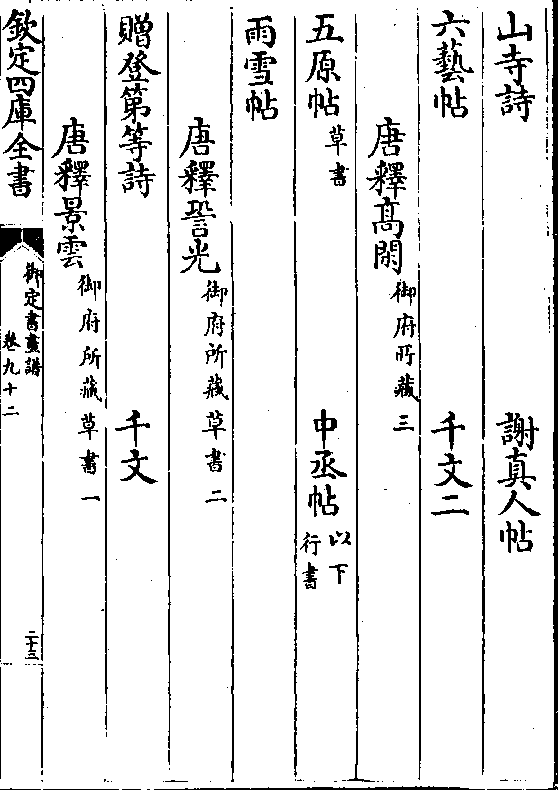 山寺詩 謝真人帖
六藝帖 千文二
唐釋髙閑 御府所藏三
五原帖 草書 中丞帖 以下行書
雨雪帖
唐釋㘁光 御府所藏草書二
贈登第等詩 千文
唐釋景雲 御府所藏草書一
欽定四庫全書 御定書畫譜 卷九十二 二十三